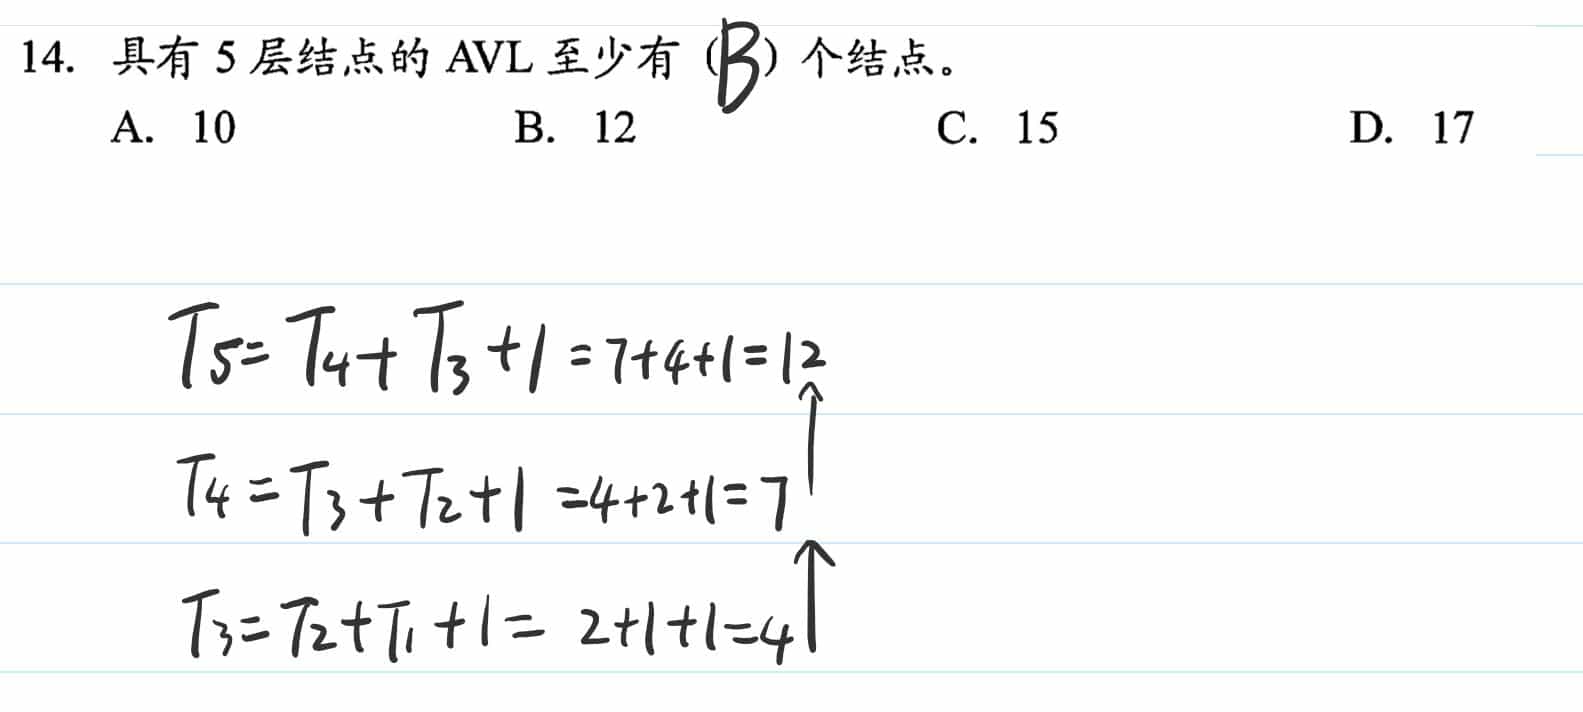 14. 具有 5 层结点的 AVL 至少有（B）个结点。
A. 10 B. 12 C. 15 D. 17
T5=T4+T3+1=7+4+1=12
T4=T3+T2+1=4+2+1=7
T3=T2+T1+1=2+1+1=4